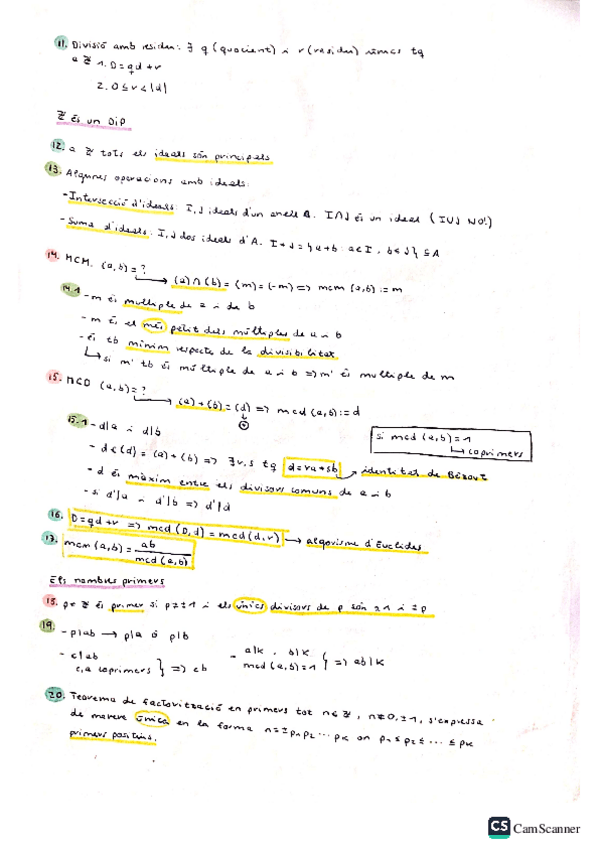 11. Divisió amb residu: ∃ q (quocient) i r (residu) únics tq
a ℤ 1. D=qd+r
2. 0≤r<|d|
ℤ és un DIP
12. a ℤ tots els ideals són principals
13. Algunes operacions amb ideals:
- Intersecció d'ideals: I, J ideals d'un anell A. I∩J és un ideal (I∪J NO!)
- Suma d'ideals: I, J dos ideals d'A. I+J = {a+b: a∈I, b∈J} ⊆ A
14. MCM. (a,b)=?
→ (a)∩(b)=(m)=(-m) => mcm (a,b) := m
14.1 - m és multiple de a i de b
- m és el més petit dels múltiples de a i b
- és tb mínim respecte de la divisibilitat
→ si m' tb és múltiple de a i b => m' és multiple de m
15. MCD (a,b)=?
→ (a)+(b)=(d) => mcd (a,b) := d
15.1 - d|a i d|b
si mcd (a,b)=1
→ coprimers
- d∈(d)=(a)+(b) => ∃ r,s tq d=ra+sb → identitat de Bézout
- d és màxim entre els divisors comuns de a i b
- si d'|a i d'|b => d'|d
16. D=qd+r => mcd (D,d) = mcd (d,r) → algorisme d'Euclides
17. mcm (a,b) = ab / mcd (a,b)
Els nombres primers
18. p∈ℤ és primer si p≠±1 i els únics divisors de p són ±1 i ±p
19. - p|ab → p|a ó p|b
- c|ab
c,a coprimers } => c|b
- a|k, b|k
mcd (a,b)=1 } => ab|k
20. Teorema de factorització en primers tot n∈ℤ, n≠0,±1, s'expressa
de manera única en la forma n=±p₁p₂...pₖ on p₁≤p₂≤...≤pₖ
primers positius.
CS CamScanner